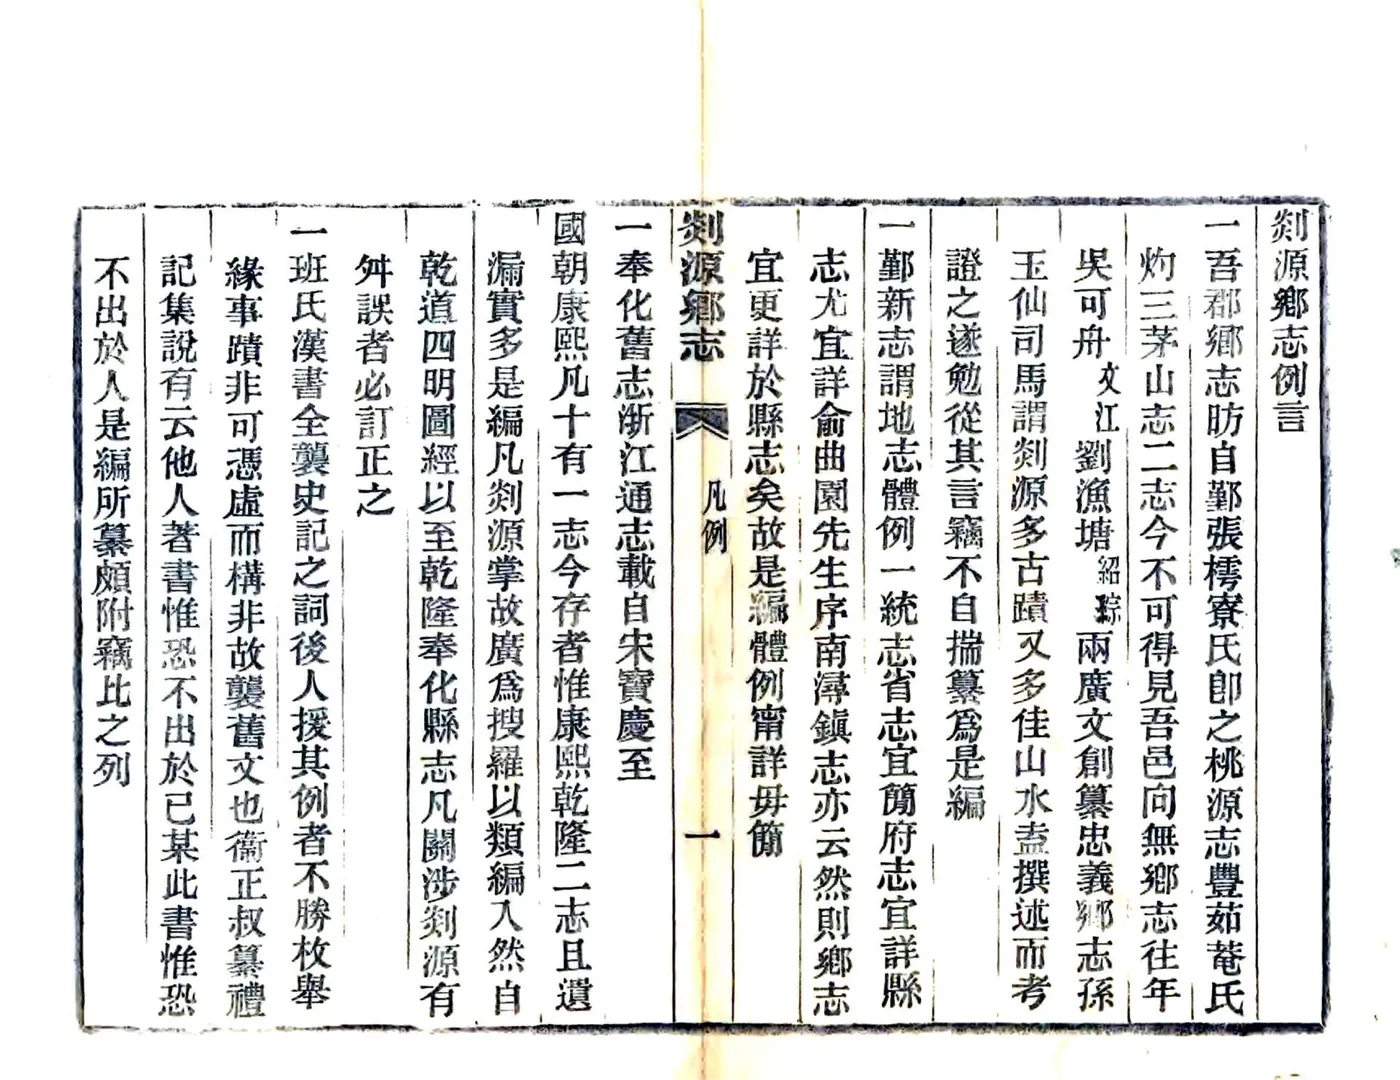 剡源鄉志例言
一吾郡鄉志昉自鄞張樗寮氏卽之桃源志豐茹菴氏
灼三茅山志二志今不可得見吾邑向無鄉志往年
吳可舟文江劉漁塘紹琮兩廣文創纂忠義鄉志孫
玉仙司馬謂剡源多古蹟又多佳山水盍撰述而考
證之遂勉從其言竊不自揣纂爲是編
一鄞新志謂地志體例一統志省志宜簡府志宜詳縣
志尤宜詳俞曲園先生序南潯鎭志亦云然則鄉志
宜更詳於縣志矣故是編體例甯詳毋簡
剡源鄉志 凡例 一
一奉化舊志浙江通志載自宋寶慶至
國朝康熙凡十有一志今存者惟康熙乾隆二志且遺
漏實多是編凡剡源掌故廣爲搜羅以類編入然自
乾道四明圖經以至乾隆奉化縣志凡關涉剡源有
舛誤者必訂正之
一班氏漢書全襲史記之詞後人援其例者不勝枚舉
緣事蹟非可憑虛而構非故襲舊文也衞正叔纂禮
記集說有云他人著書惟恐不出於已某此書惟恐
不出於人是編所纂頗附竊比之列